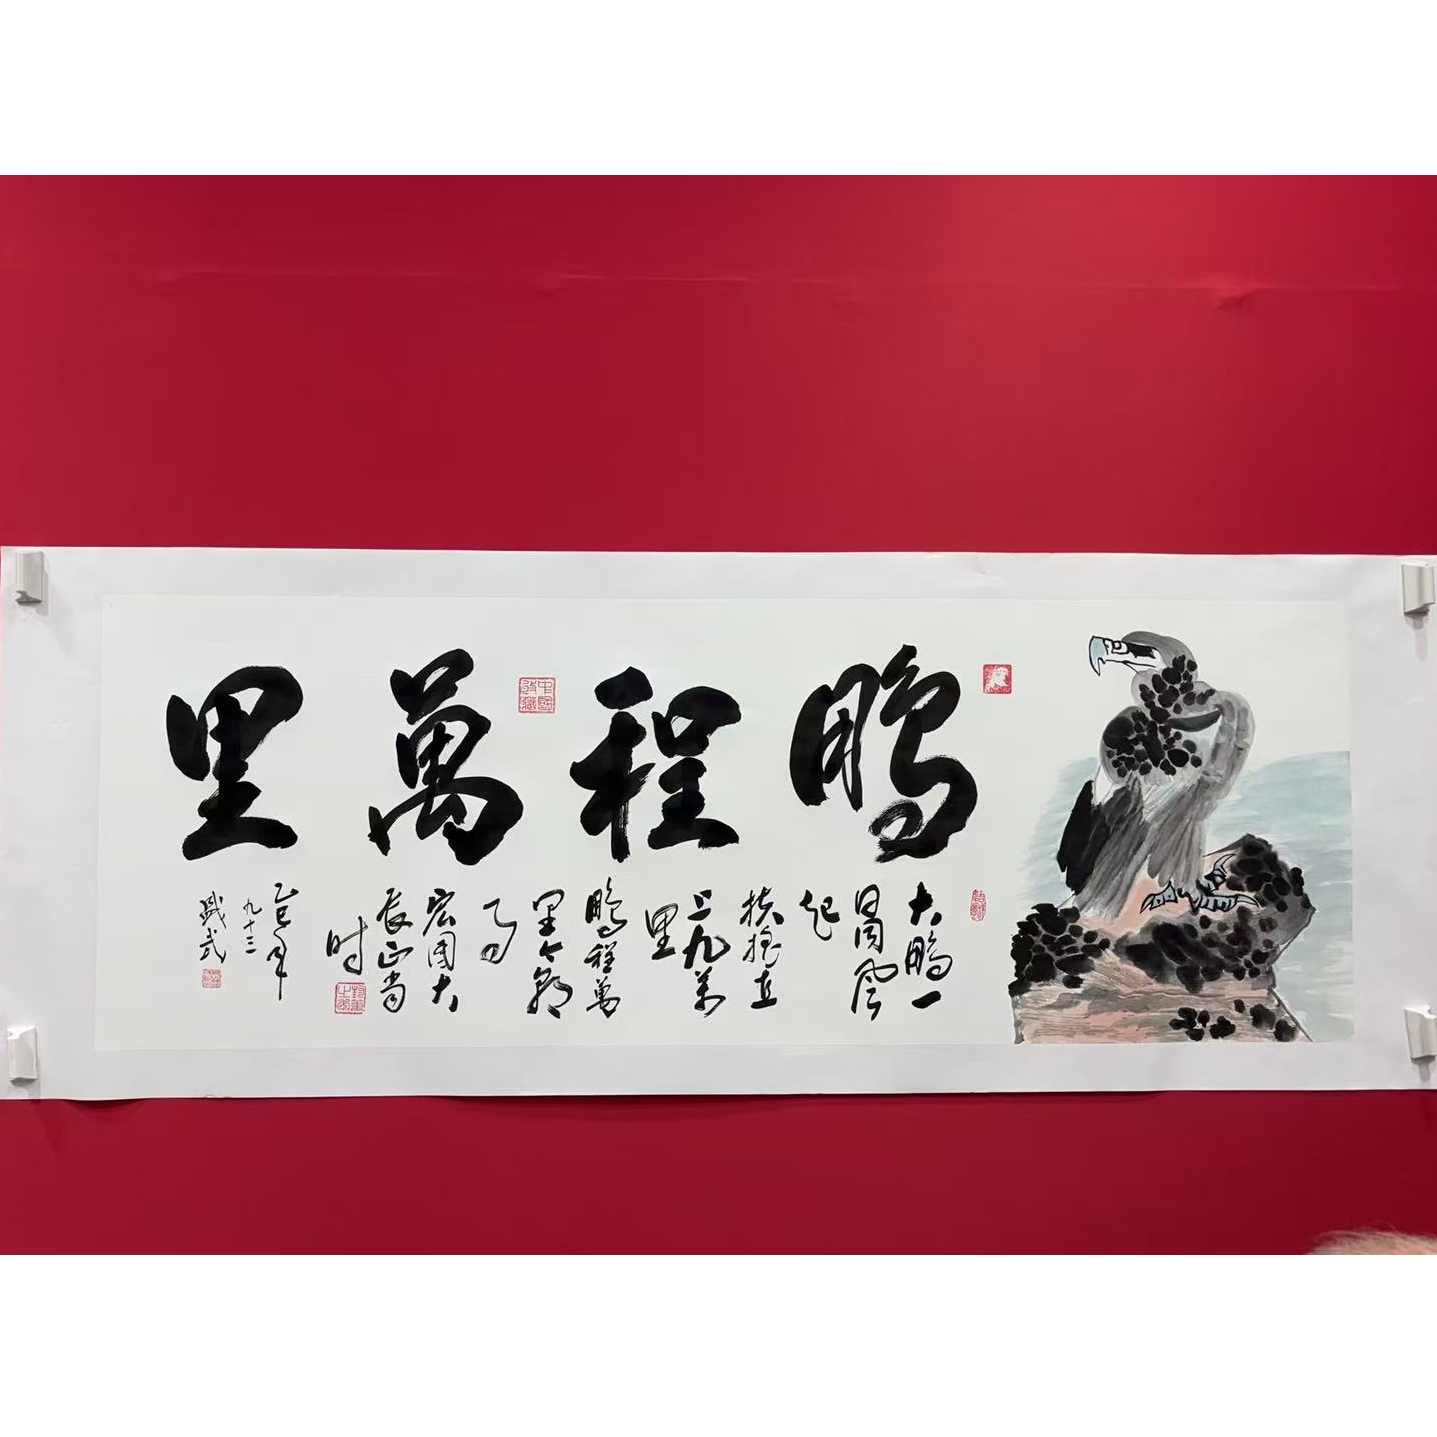 鹏程萬里
大鹏一
日同風
起
扶摇直
上九萬
里
鹏程萬
里今朝
宏图大
展正当
时
乙巳年
九十三